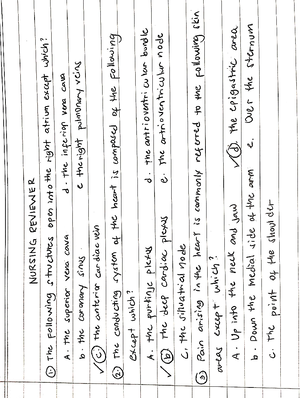 NURSING REVIEWER
① The following structures open into the right atrium except which?
A. the superior vena cava d. the inferior vena cava
b. the coronary sinus e the right pulmonary veins
✓ⓒ the anterior cardiac vein
② The conducting system of the heart is composed of the following
except which?
A. the purkinje plexus d. the antrioventricular bundle
✓ⓑ the deep cardiac plexus e. the artrioventricular node
c. the silvatrial node
③ Pain arising in the heart is commonly referred to the following skin
areas except which?
A. Up into the neck and jaw ✓ⓓ the epigastric area
b. Down the medial side of the arm e. Over the sternum
c. The point of the shoulder